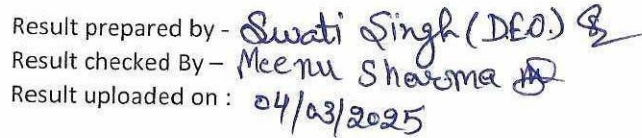 Result prepared by - Swati Singh (DEO.)
Result checked By – Meenu Sharma
Result uploaded on : 04/03/2025